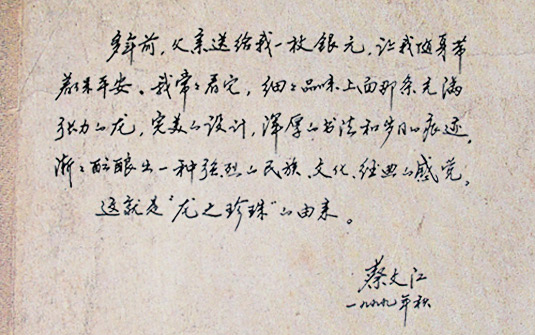 多年前，父亲送给我一枚银元，让我随身带
着保平安、我常常看它，细细品味上面那条充满
张力的龙，完美的设计，浑厚的书法和岁月的痕迹，
渐渐酝酿出一种强烈的民族、文化、经典的感觉。
这就是“龙之珍珠”的由来。
蔡文江
一九九九年秋